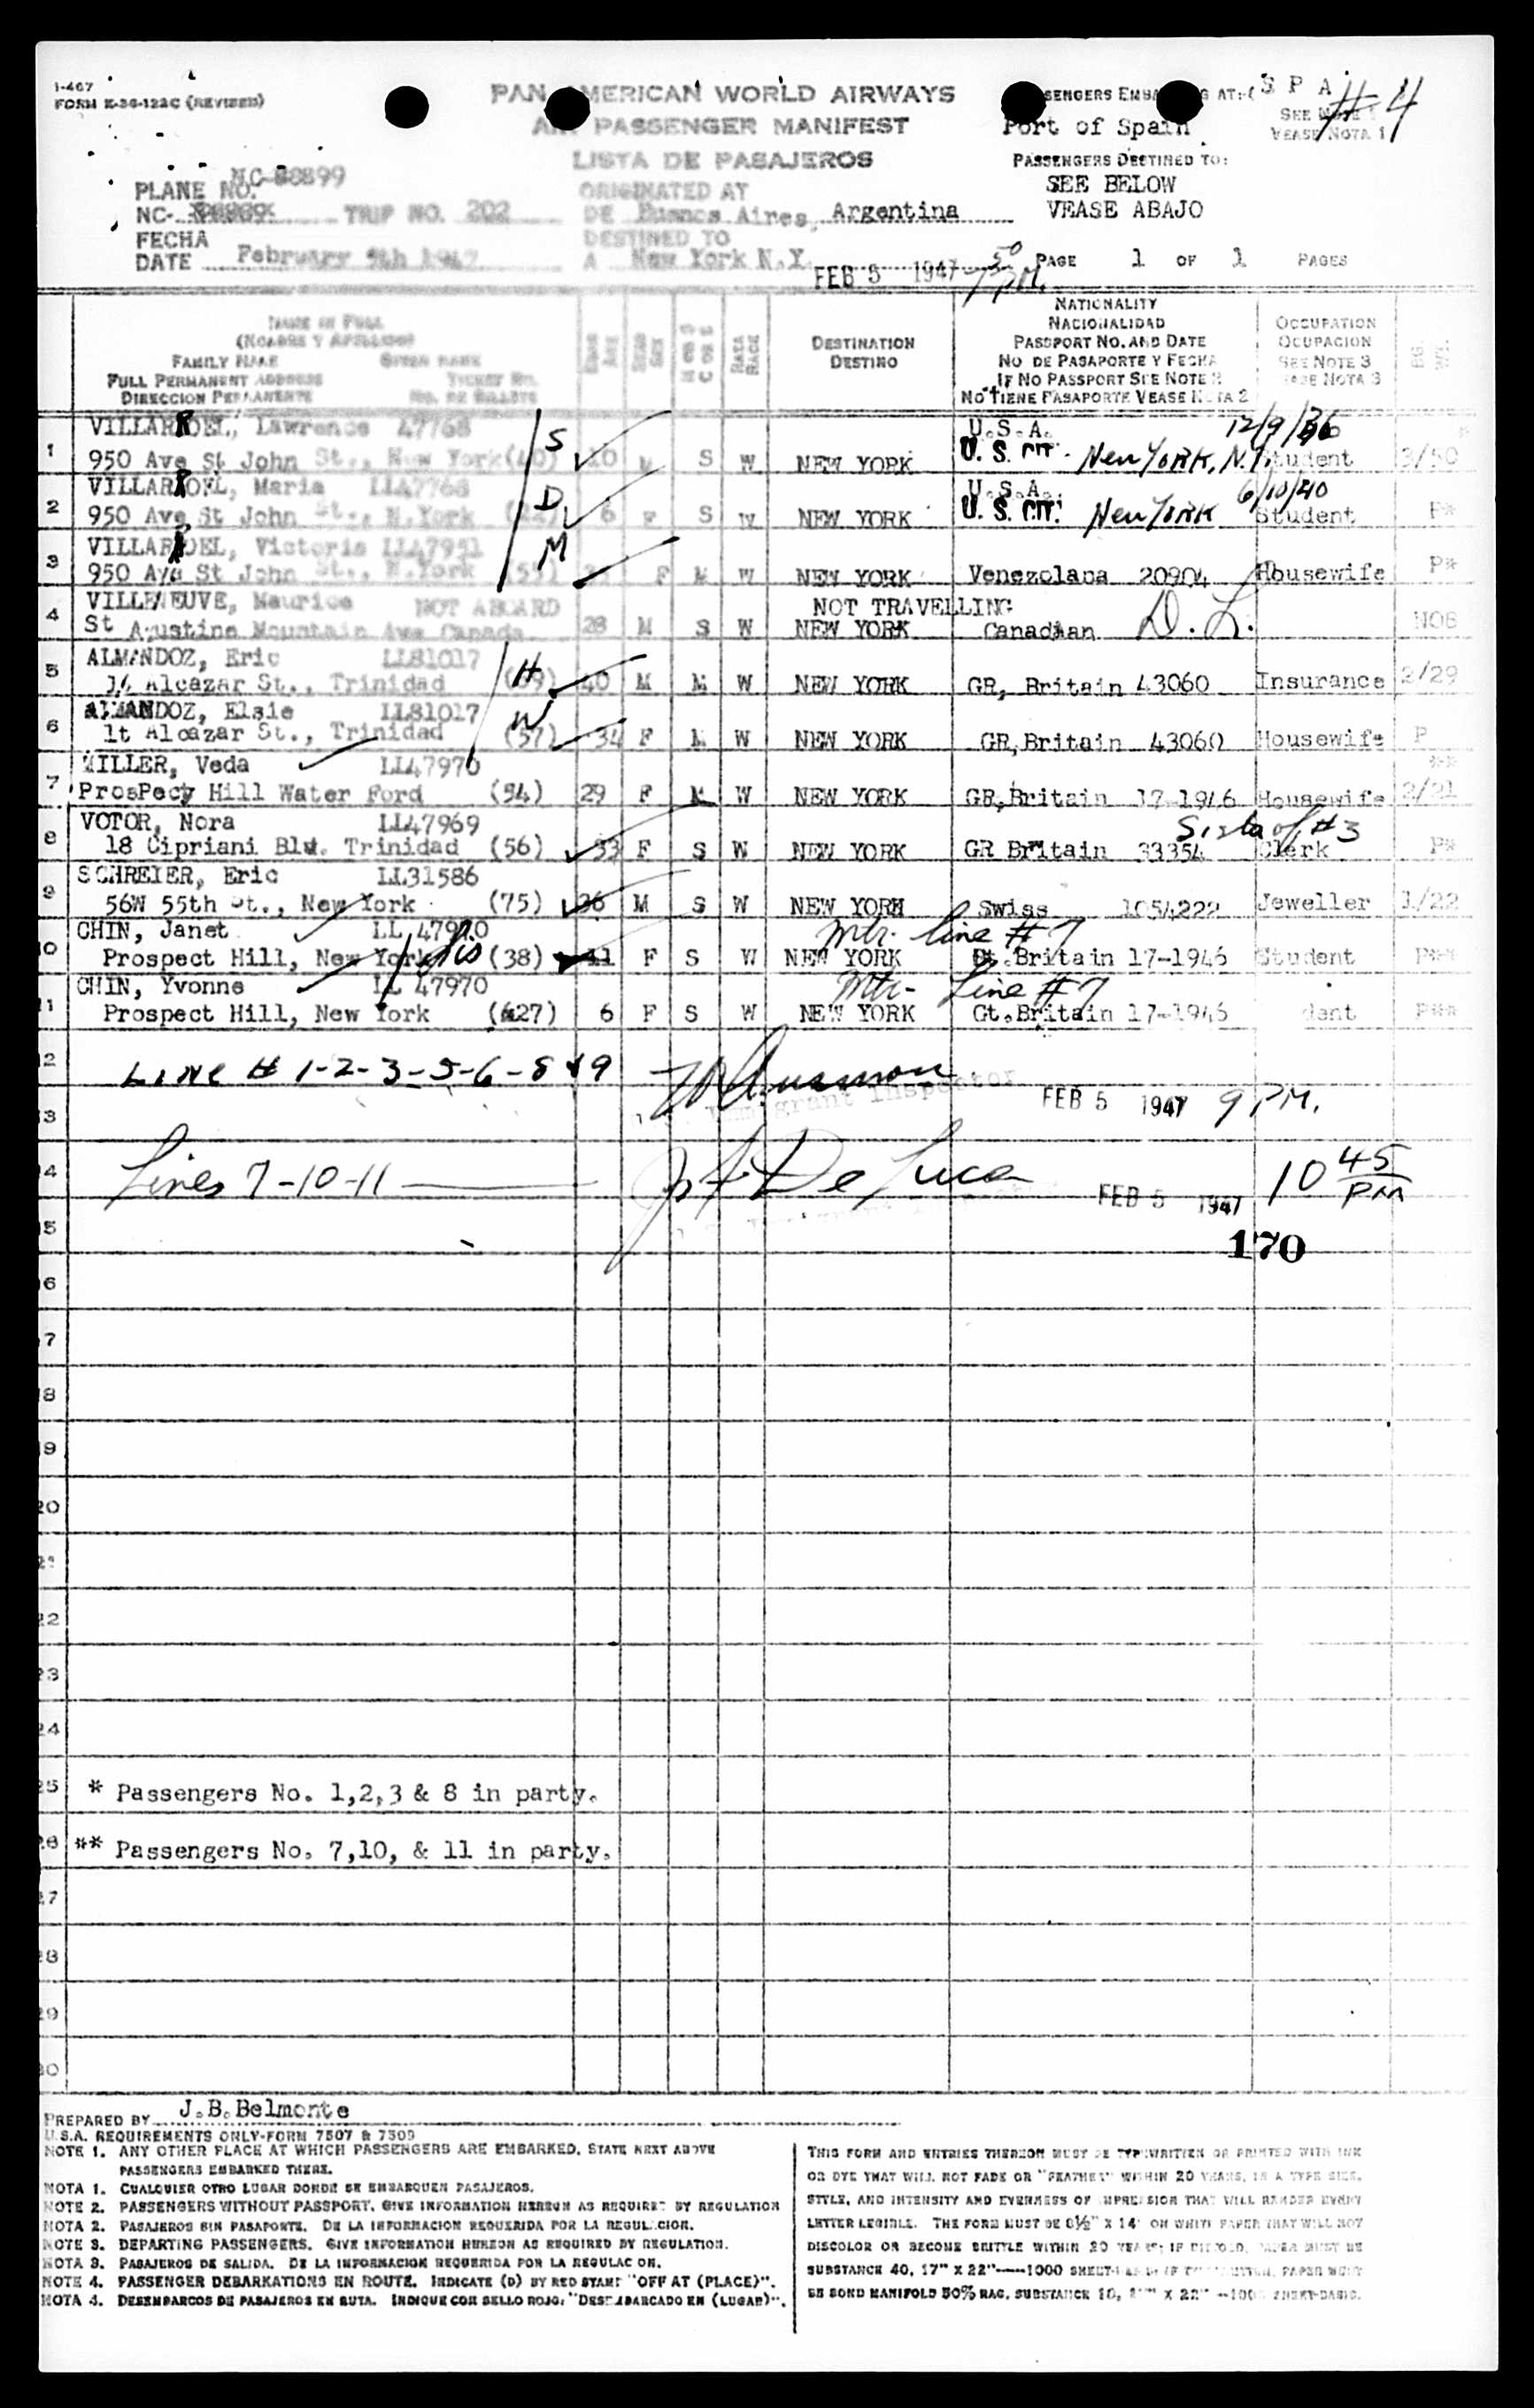 I-467
FORM K-36-122C (REVISED)
PAN AMERICAN WORLD AIRWAYS
AIR PASSENGER MANIFEST
LISTA DE PASAJEROS
SENGERS EMBA G AT: S P A
#4
Port of Spain
SEE NOTE 1
VEASE NOTA 1
PASSENGERS DESTINED TO:
SEE BELOW
VEASE ABAJO
PLANE NO. NC-88899
NC- TRIP NO. 202
ORIGINATED AT
DE Buenos Aires, Argentina
FECHA
DATE February 5th 1947
DESTINED TO
A New York N.Y.
FEB 5 1947 7 50 PM.
PAGE 1 OF 1 PAGES
NAME IN FULL
(NOMBRE Y APELLIDO)
FAMILY NAME GIVEN NAME
FULL PERMANENT ADDRESS TICKET NO.
DIRECCION PERMANENTE NO. DE BILLETE
EDAD AGE SEXO SEX RAZA RACE
DESTINATION
DESTINO
NATIONALITY
NACIONALIDAD
PASSPORT NO. AND DATE
NO DE PASAPORTE Y FECHA
IF NO PASSPORT SEE NOTE 2
NO TIENE PASAPORTE VEASE NOTA 2
OCCUPATION
OCUPACION
SEE NOTE 3
VEASE NOTA 3
VILLARROEL, Lawrence 47768 S U.S.A. 12/9/36
1 950 Ave St John St., New York (40) 10 M S W NEW YORK U. S. CIT. New York, N.Y. Student 3/50
VILLARROEL, Maria LL47768 D U.S.A. 6/10/40
2 950 Ave St John St., N.York 6 F S W NEW YORK U. S. CIT. New York Student P*
VILLARROEL, Victoria LL47951 M
3 950 Ave St John St., N.York (55) F M W NEW YORK Venezolana 20904 Housewife P*
VILLENEUVE, Maurice NOT ABOARD NOT TRAVELLING
4 St Agustine Mountain Ave Canada 28 M S W NEW YORK Canadian D. L. NOS
ALMANDOZ, Eric LL81017 H
5 14 Alcazar St., Trinidad (69) 40 M M W NEW YORK GR, Britain 43060 Insurance 2/29
ALMANDOZ, Elsie LL81017 W
6 1t Alcazar St., Trinidad (57) 34 F M W NEW YORK GR, Britain 43060 Housewife P
MILLER, Veda LL47970 **
7 ProsPecy Hill Water Ford (54) 29 F M W NEW YORK GR, Britain 17-1946 Housewife 2/21
VOTOR, Nora LL47969 Sister of #3
8 18 Cipriani Blv. Trinidad (56) 33 F S W NEW YORK GR Britain 33354 Clerk P*
SCHREIER, Eric LL31586
9 56W 55th St., New York (75) 36 M S W NEW YORK Swiss 1054222 Jeweller 1/22
CHIN, Janet LL 47970 Mtr. Line #7
10 Prospect Hill, New York Sis (38) 11 F S W NEW YORK Gt.Britain 17-1946 Student P**
CHIN, Yvonne LL 47970 Mtr- Line #7
11 Prospect Hill, New York (627) 6 F S W NEW YORK Gt.Britain 17-1946 dent P**
12 LINE # 1-2-3-5-6-8 & 9
Immigrant Inspector FEB 5 1947 9 PM.
13
14 Lines 7-10-11 De Luca FEB 5 1947 10 45 PM
15 170
16
17
18
19
20
21
22
23
24
25 * Passengers No. 1,2,3 & 8 in party.
26 ** Passengers No. 7,10, & 11 in party.
27
28
29
30
PREPARED BY J.B.Belmonte
U.S.A. REQUIREMENTS ONLY-FORM 7507 & 7509
NOTE 1. ANY OTHER PLACE AT WHICH PASSENGERS ARE EMBARKED, STATE NEXT ABOVE
PASSENGERS EMBARKED THERE.
NOTA 1. CUALQUIER OTRO LUGAR DONDE SE EMBARQUEN PASAJEROS.
NOTE 2. PASSENGERS WITHOUT PASSPORT, GIVE INFORMATION HEREON AS REQUIRED BY REGULATION
NOTA 2. PASAJEROS SIN PASAPORTE. DE LA INFORMACION REQUERIDA POR LA REGULACION.
NOTE 3. DEPARTING PASSENGERS. GIVE INFORMATION HEREON AS REQUIRED BY REGULATION.
NOTA 3. PASAJEROS DE SALIDA. DE LA INFORMACION REQUERIDA POR LA REGULAC ON.
NOTE 4. PASSENGER DEBARKATIONS EN ROUTE. INDICATE (D) BY RED STAMP "OFF AT (PLACE)".
NOTA 4. DESEMBARCOS DE PASAJEROS EN RUTA. INDIQUE CON SELLO ROJO: "DESEMBARCADO EN (LUGAR)".
THIS FORM AND ENTRIES THEREON MUST BE TYPEWRITTEN OR PRINTED WITH INK
OR DYE THAT WILL NOT FADE OR "FEATHER" WITHIN 20 YEARS, IN A TYPE SIZE,
STYLE, AND INTENSITY AND EVENNESS OF IMPRESSION THAT WILL RENDER EVERY
LETTER LEGIBLE. THE FORM MUST BE 8½" X 14" ON WHITE PAPER THAT WILL NOT
DISCOLOR OR BECOME BRITTLE WITHIN 20 YEARS; IF PRINTED, PAPER MUST BE
SUBSTANCE 40, 17" X 22"-----1000 SHEET-BASIS; IF TYPEWRITTEN, PAPER MUST
BE BOND MANIFOLD 50% RAG, SUBSTANCE 18, X 22" --1000 SHEET-BASIS.